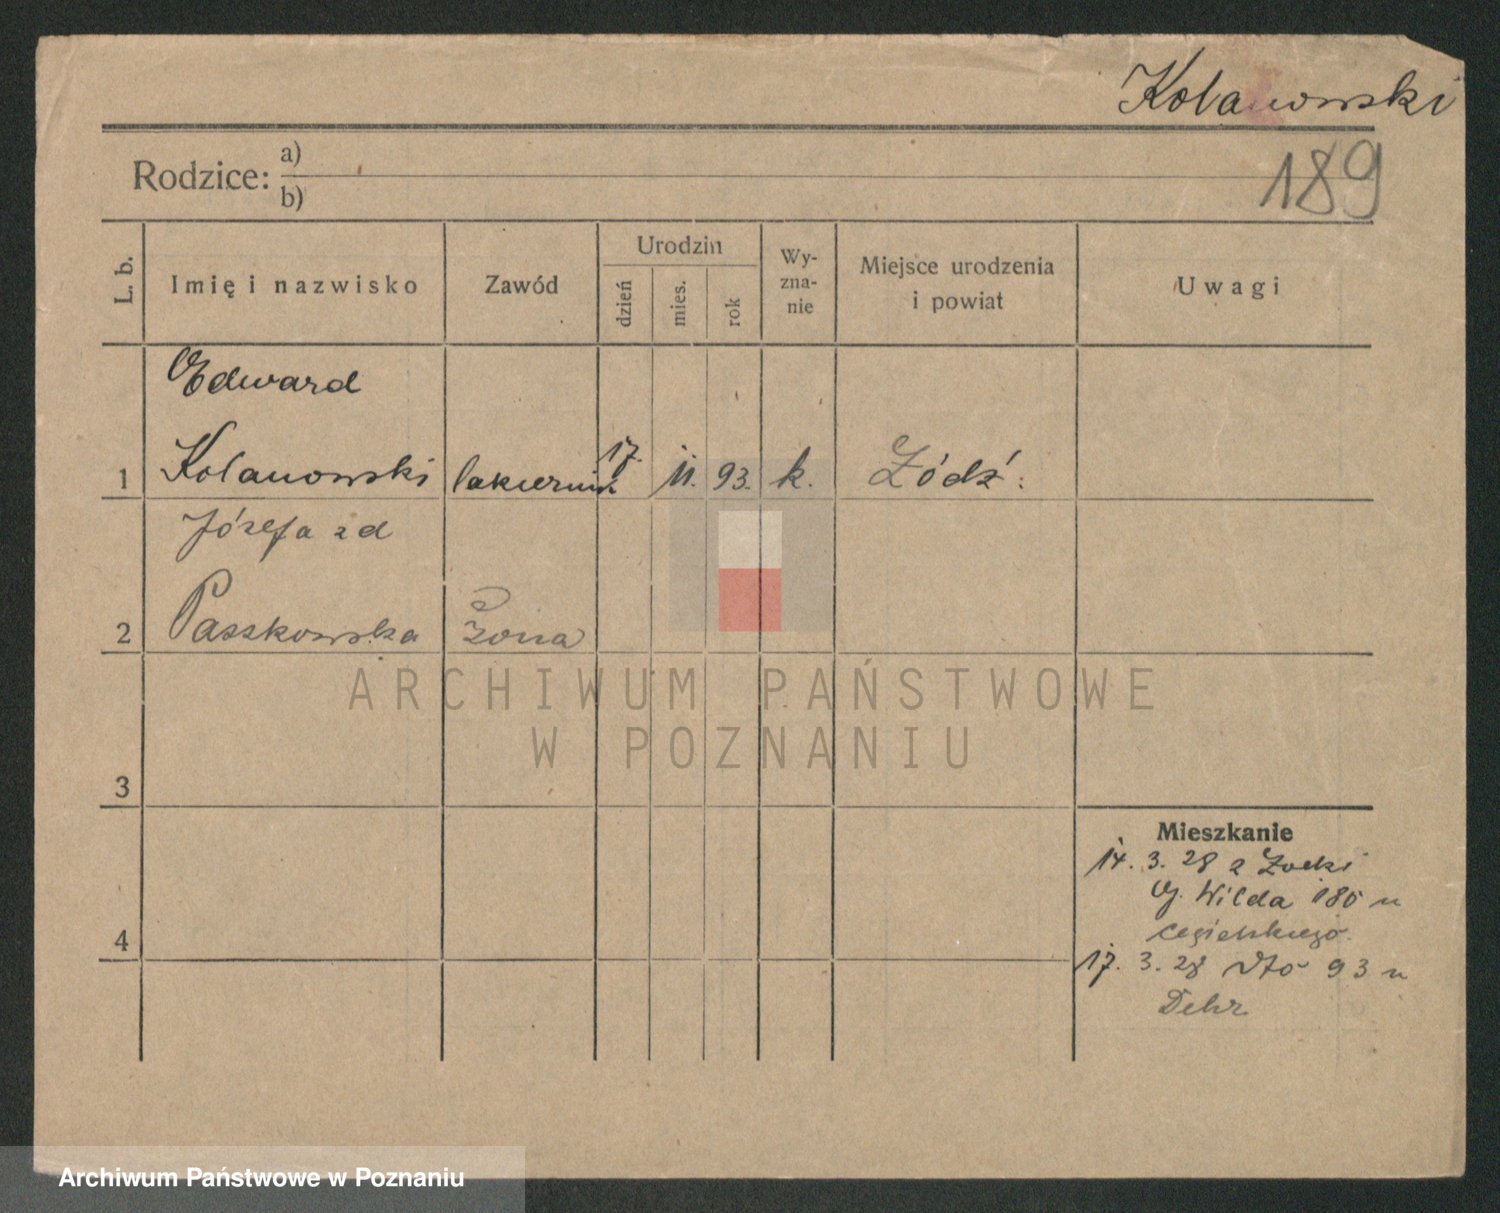 Kolanowski
189
Rodzice: a)
b)
L. b.
Imię i nazwisko
Zawód
Urodzin
dzień
mies.
rok
Wy-
zna-
nie
Miejsce urodzenia
i powiat
Uwagi
Edward
1 Kolanowski lakiernik 17. 11. 93. k. Łódź.
Józefa z d
2 Paszkowska żona
3
4
Mieszkanie
14. 3. 28 z
G. Wilda 180 u
Cegielskiego.
17. 3. 28 dto 93 u
ARCHIWUM PAŃSTWOWE
W POZNANIU
Archiwum Państwowe w Poznaniu